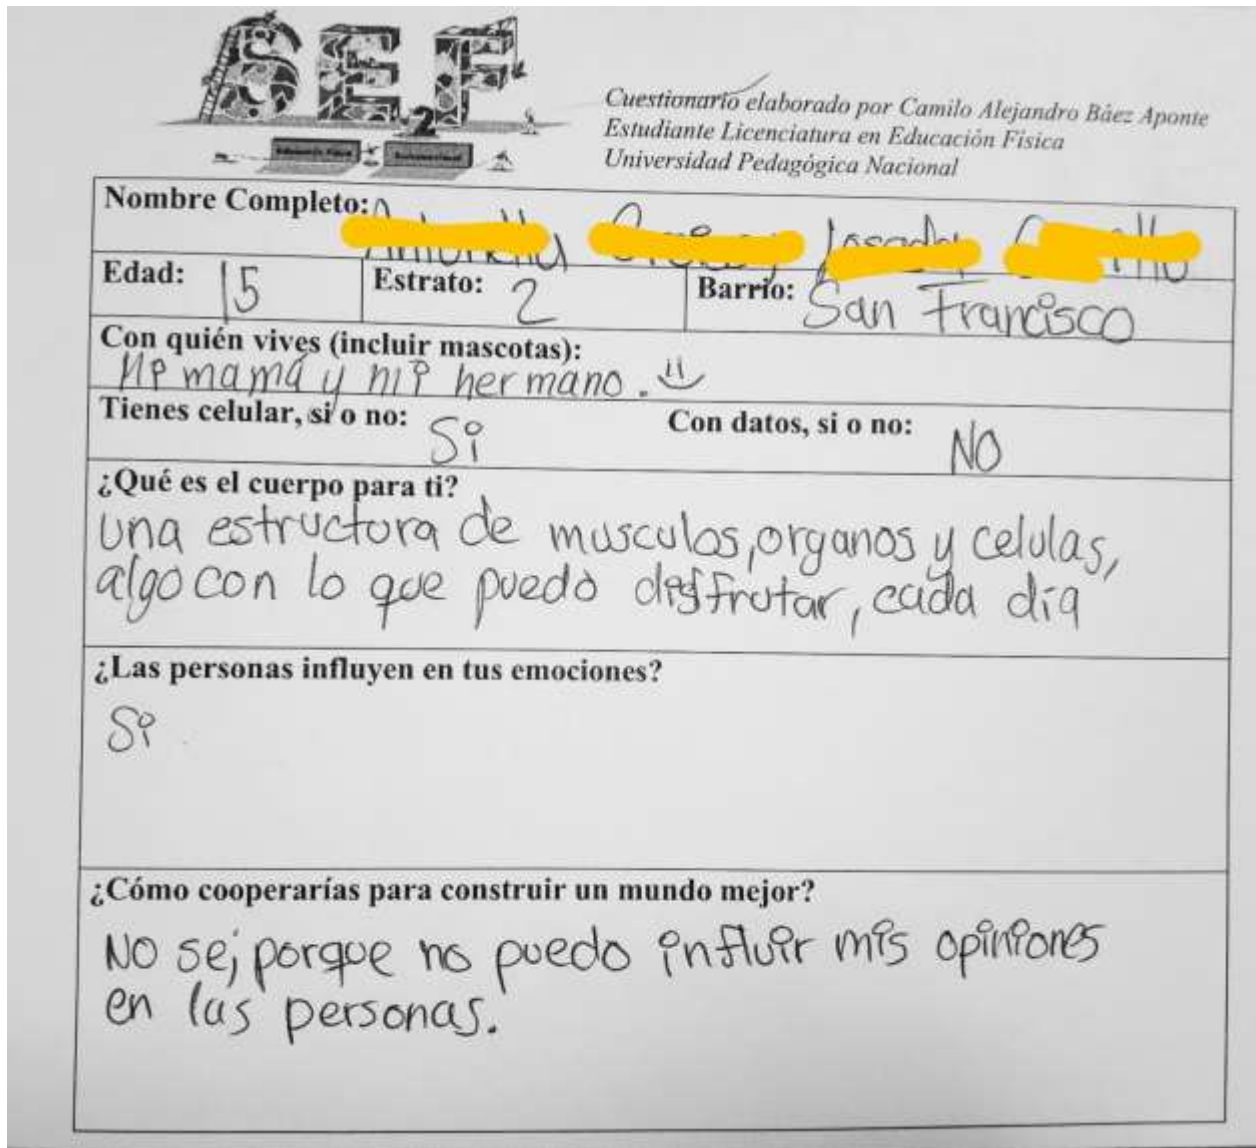 SEF
2
Cuestionario elaborado por Camilo Alejandro Báez Aponte
Estudiante Licenciatura en Educación Física
Universidad Pedagógica Nacional
Nombre Completo:
Edad: 15 Estrato: 2 Barrio: San Francisco
Con quién vives (incluir mascotas):
Mi mamá y mi hermano.
Tienes celular, si o no: Si Con datos, si o no: NO
¿Qué es el cuerpo para ti?
una estructura de musculos, organos y celulas,
algo con lo que puedo disfrutar, cada día
¿Las personas influyen en tus emociones?
Si
¿Cómo cooperarías para construir un mundo mejor?
No se, porque no puedo influir mis opiniones
en las personas.